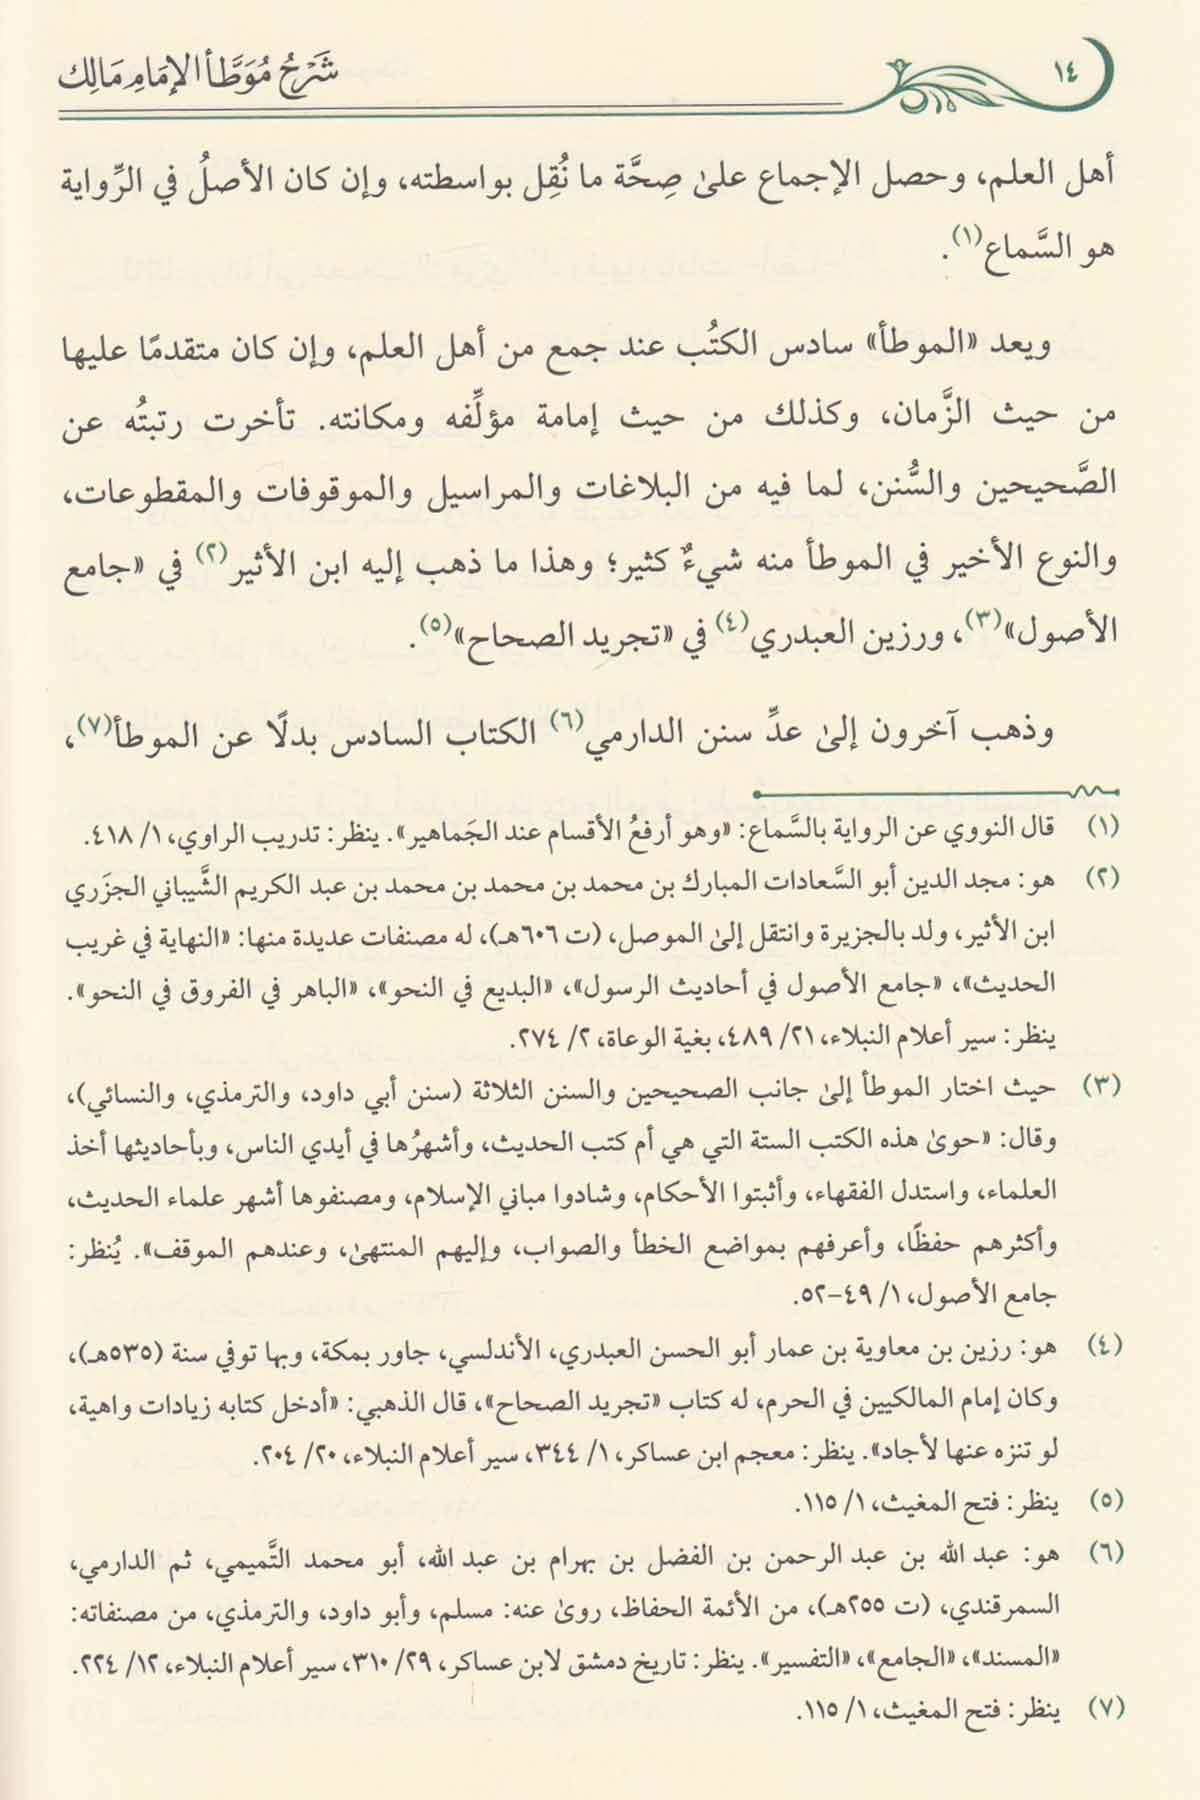 ١٤
شَرْحُ مُوَطَّأ الإمَامِ مَالِك
أهل العلم، وحصل الإجماع علىٰ صِحَّة ما نُقِل بواسطته، وإن كان الأصلُ في الرِّواية
هو السَّماع(١).
ويعد «الموطأ» سادس الكتُب عند جمع من أهل العلم، وإن كان متقدمًا عليها
من حيث الزَّمان، وكذلك من حيث إمامة مؤلِّفه ومكانته. تأخرت رتبتُه عن
الصَّحيحين والسُّنن، لما فيه من البلاغات والمراسيل والموقوفات والمقطوعات،
والنوع الأخير في الموطأ منه شيءٌ كثير؛ وهذا ما ذهب إليه ابن الأثير(٢) في «جامع
الأصول»(٣)، ورزين العبدري(٤) في «تجريد الصحاح»(٥).
وذهب آخرون إلىٰ عدِّ سنن الدارمي(٦) الكتاب السادس بدلًا عن الموطأ(٧)،
(١) قال النووي عن الرواية بالسَّماع: «وهو أرفعُ الأقسام عند الجَماهير». ينظر: تدريب الراوي، ١/ ٤١٨.
(٢) هو: مجد الدين أبو السَّعادات المبارك بن محمد بن محمد بن محمد بن عبد الكريم الشَّيباني الجزَري
ابن الأثير، ولد بالجزيرة وانتقل إلىٰ الموصل، (ت ٦٠٦هـ)، له مصنفات عديدة منها: «النهاية في غريب
الحديث»، «جامع الأصول في أحاديث الرسول»، «البديع في النحو»، «الباهر في الفروق في النحو».
ينظر: سير أعلام النبلاء، ٢١/ ٤٨٩، بغية الوعاة، ٢/ ٢٧٤.
(٣) حيث اختار الموطأ إلىٰ جانب الصحيحين والسنن الثلاثة (سنن أبي داود، والترمذي، والنسائي)،
وقال: «حوىٰ هذه الكتب الستة التي هي أم كتب الحديث، وأشهرُها في أيدي الناس، وبأحاديثها أخذ
العلماء، واستدل الفقهاء، وأثبتوا الأحكام، وشادوا مباني الإسلام، ومصنفوها أشهر علماء الحديث،
وأكثرهم حفظًا، وأعرفهم بمواضع الخطأ والصواب، وإليهم المنتهىٰ، وعندهم الموقف». يُنظر:
جامع الأصول، ١/ ٤٩-٥٢.
(٤) هو: رزين بن معاوية بن عمار أبو الحسن العبدري، الأندلسي، جاور بمكة، وبها توفي سنة (٥٣٥هـ)،
وكان إمام المالكيين في الحرم، له كتاب «تجريد الصحاح»، قال الذهبي: «أدخل كتابه زيادات واهية،
لو تنزه عنها لأجاد». ينظر: معجم ابن عساكر، ١/ ٣٤٤، سير أعلام النبلاء، ٢٠/ ٢٠٤.
(٥) ينظر: فتح المغيث، ١/ ١١٥.
(٦) هو: عبد الله بن عبد الرحمن بن الفضل بن بهرام بن عبد الله، أبو محمد التَّميمي، ثم الدارمي،
السمرقندي، (ت ٢٥٥هـ)، من الأئمة الحفاظ، روىٰ عنه: مسلم، وأبو داود، والترمذي، من مصنفاته:
«المسند»، «الجامع»، «التفسير». ينظر: تاريخ دمشق لابن عساكر، ٢٩/ ٣١٠، سير أعلام النبلاء، ١٢/ ٢٢٤.
(٧) ينظر: فتح المغيث، ١/ ١١٥.